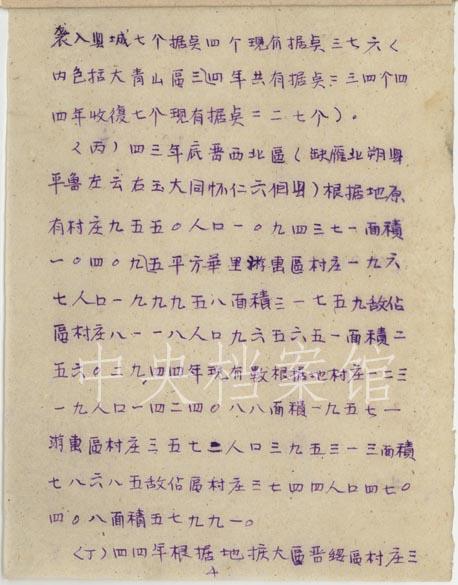 袭入县城七个据点四个现有据点三七六(
内包括大青山區三)四年共有据点二三四个四
四年收復七个现有据点二二七个)。
(丙)四三年底晋西北區(缺雁北朔县
平鲁左云右玉大同怀仁六個县)根据地原
有村庄九五五〇人口一〇九四三七一面積
一〇四〇九五平方華里游击區村庄一九六
七人口一九九九五八面積三一七五九敌佔
區村庄八一一八人口九六五六五一面積二
五六〇三九,四四年现有数根据地村庄一二三
一九人口一四二四〇八八面積一九五七一
游击區村庄三五七二人口三九五三一三面積
七八六八五敌佔區村庄三七四四人口四七〇
四〇八面積五七九九一〇。
(丁)四四年根据地扩大區晋綏區村庄三
4
中央档案馆